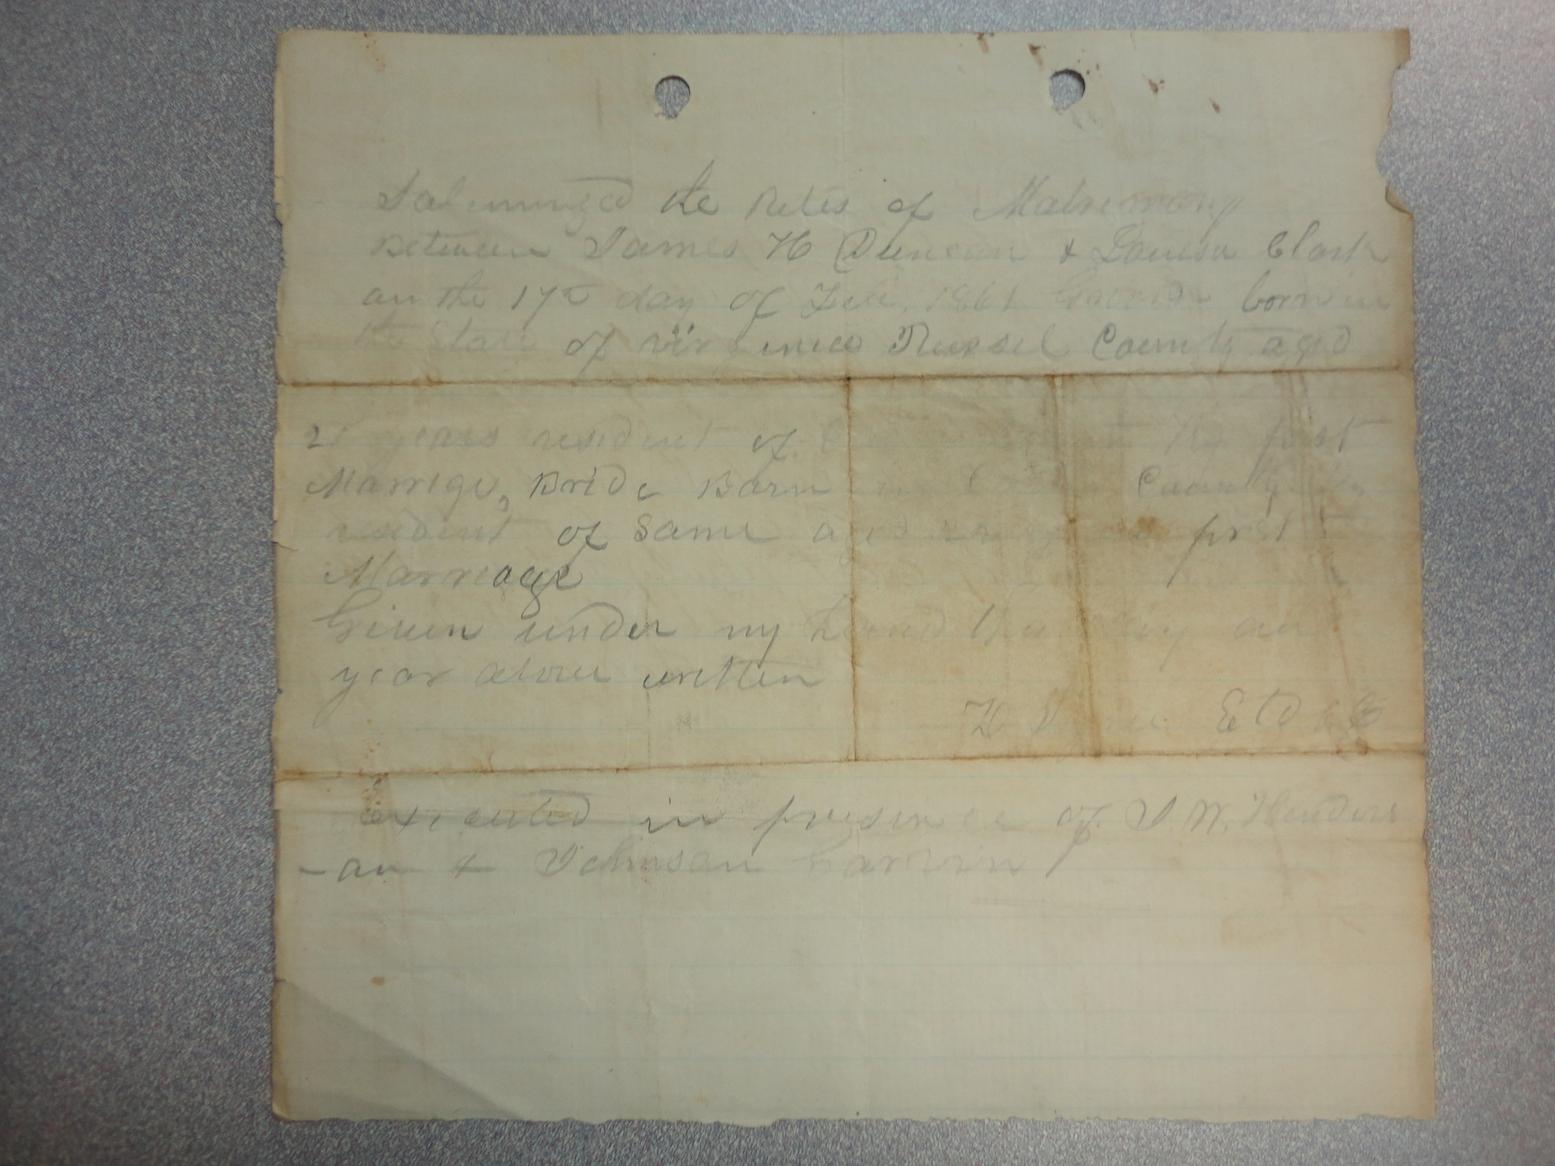 Solemnized the Rites of Matrimony
Between James H Duncan & Louisa Clark
on the 17th day of Feb. 1861 Groom born in
the State of Virginia Russel County aged
years resident of first
Marrige, Bride Born in County Ky
resident of same aged first
Marriage
Given under my hand this day an
year above written
executed in presence of J. W. Henders
-on & Johnson